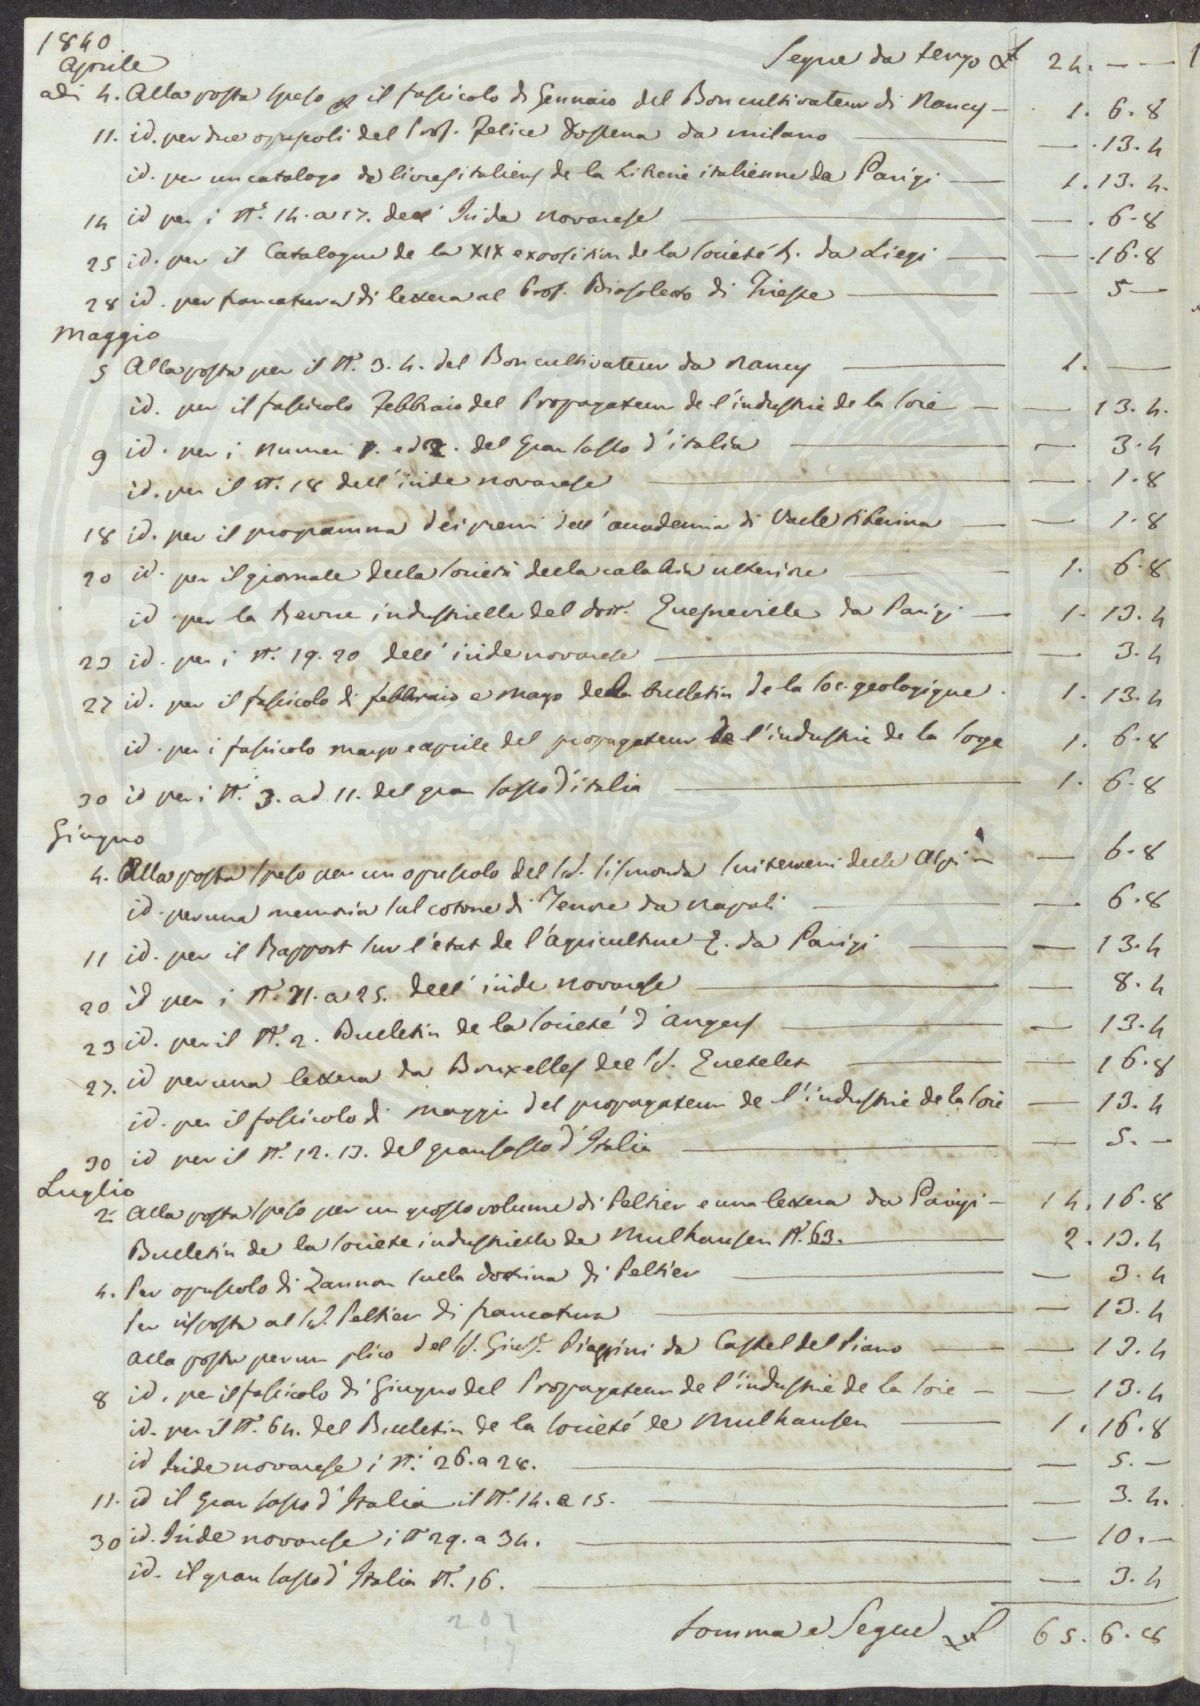 1840
Segue da tergo £ 24. — —
Aprile
adi 4. Alla posta speso p il fascicolo di Gennaio del Bon cultivateur di Nancy — 1. 6. 8
11. id. per due opuscoli del Prof. Felice Dossena da Milano — . 13. 4
id. per un catalogo de livres italiens de la Librerie italienne da Parigi — 1. 13. 4.
14 id per i N.i 14. a 17. dell' Iride novarese — . 6. 8
25 id. per il Catalogue de la XIX exposition de la Société h. da Liegi — . 16. 8
28 id. per francatura di lettera al Prof. Biasoletto di Trieste — 5 —
Maggio
5 Alla posta per il N. 3. 4. del Bon cultivateur da Nancy — 1. —
id. per il fascicolo Febbraio del Propagateur de l'industrie de la soie — — 13. 4.
9 id. per i Numeri 1. ed 2. del Gran Sasso d'italia — 3. 4
id. per il N. 18 dell' iride novarese — 1. 8
18 id. per il programma dei premi dell' accademia di Valle tiberina — — 1. 8
20 id. per il giornale della Società della calabria ulteriore — 1. 6. 8
id per la Revue industrielle del dott. Quesneville da Parigi — 1. 13. 4
23 id. per i N. 19. 20 dell' iride novarese — 3. 4
27 id. per il fascicolo di febbraio e marzo della bulletin de la Soc. geologique. 1. 13. 4
id. per i fascicolo marzo e aprile del propagateur de l'industrie de la soye 1. 6. 8
30 id per i N.i 3. ad 11. del gran Sasso d'italia — 1. 6. 8
Giugno
4. Alla posta speso per un opuscolo del Sd. Sismonda sui terreni delle Alpi — — 6. 8
id. per una memoria sul cotone di Tenore da Napoli — 6. 8
11 id. per il Rapport sur l'etat de l'agriculture da Parigi — 13. 4
20 id per i N. 21. a 25. dell' iride novarese — 8. 4
23 id. per il N. 2. Bulletin de la Société d'Angers — 13. 4
27. id per una lettera da Bruxelles del Sd. Quetelet — 16. 8
id. per il fascicolo di Maggio del propagateur de l'industrie de la Soie — 13. 4
30 id per il N. 12. 13. del gran Sasso d'Italia — 5. —
Luglio
2 Alla posta speso per un grosso volume di Peltier e una lettera da Parigi — 14. 16. 8
Bulletin de la Société industrielle de Mulhausen N. 63. — 2. 13. 4
4. Per opuscolo di Zannon sulla dottrina di Peltier — 3. 4
Per risposta al Sd. Peltier di francatura — 13. 4
Alla posta per un plico del Sd. Gius. Piaggini da Castel del Piano — 13. 4
8 id. per il fascicolo di Giugno del Propagateur de l'industrie de la Soie — — 13. 4
id. per il N. 64. del Bulletin de la Société de Mulhausen — 1. 16. 8
id Iride novarese i N.i 26. a 28. — 5. —
11. id il gran Sasso d'Italia il N. 14. e 15. — 3. 4.
30 id. Iride novarese i N 29. a 34. — 10. —
id. il gran Sasso d'Italia N. 16. — 3. 4
Somma e Segue £ 65. 6. 8
207
17